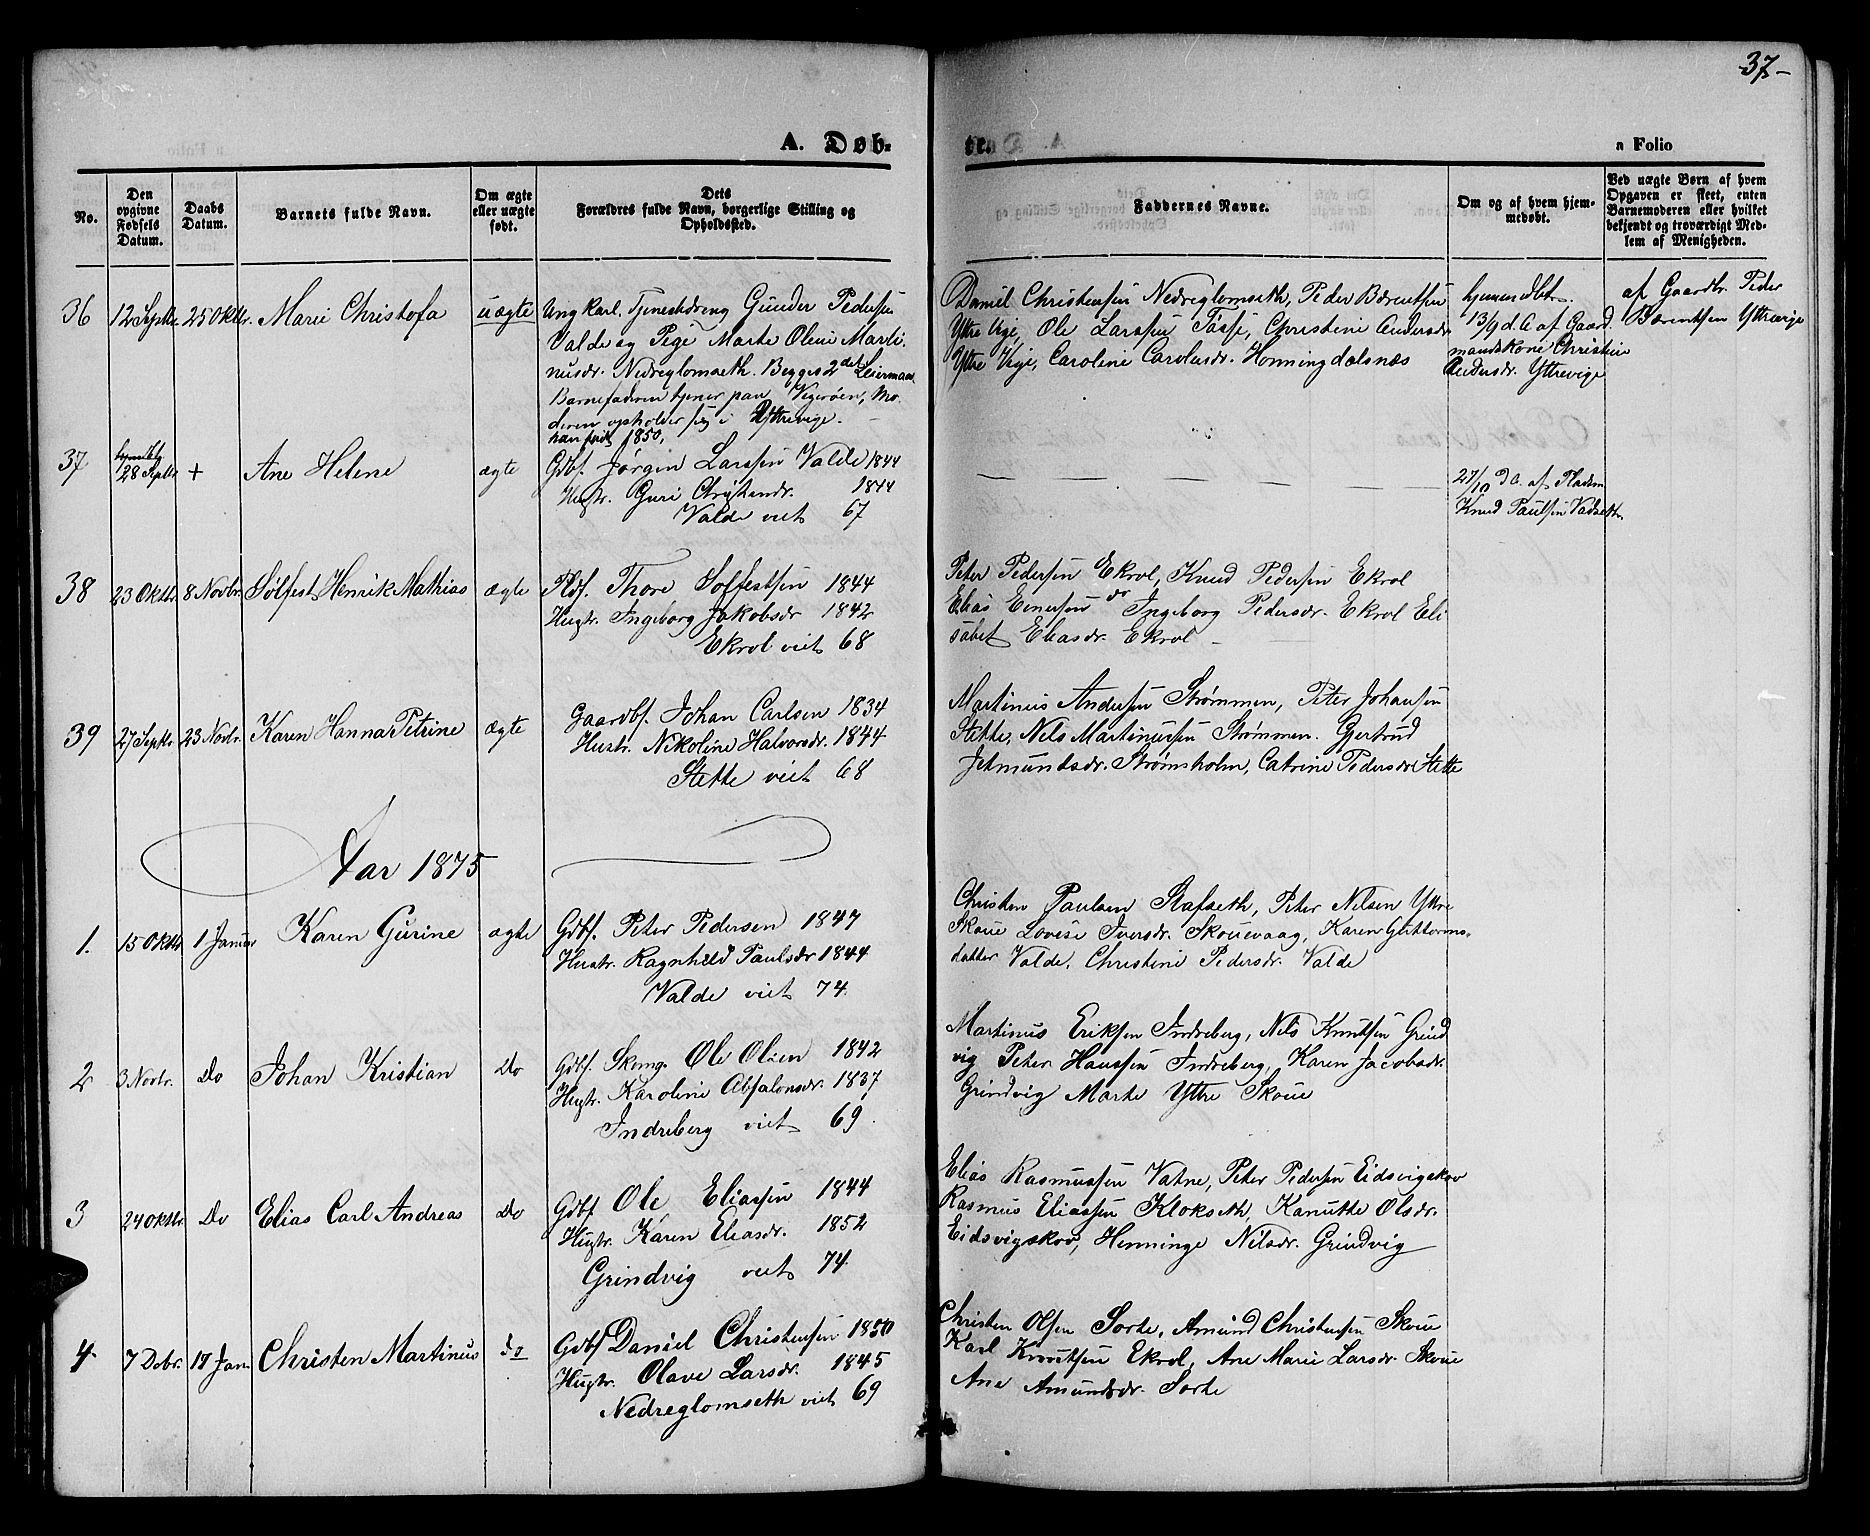 37-
A. Døb-
te.
n Folio
No.
Den opgivne Fødsels Datum.
Daabs Datum.
Barnets fulde Navn.
Om ægte eller uægte født.
Dets Forældres fulde Navn, borgerlige Stilling og Opholdssted.
Faddernes Navne.
Om og af hvem hjemmedøbt.
Ved uægte Børn af hvem Opgaven er skeet, enten Barnemoderen eller hvilket bekjendt og troværdigt Medlem af Menigheden.
36 12 Septr. 25 Oktbr. Marie Christofa uægte
Ung Karl, Tjenestedreng Gunder Pedersen
Valde og Pige Marte Oline Marti-
nusdr. Nedreglomseth. Begges 2det Leiermaal
Barnefaderen tjener paa Vegerøen, Mo-
deren opholder sig i Yttrevige.
1850,
Daniel Christensen Nedreglomseth, Peder Bærentsen
Yttre Vige, Ole Larssen Tasse, Christine Andersdr.
Yttre Vige, Caroline Carolusdr. Honningdalsnæs
hjemmedbt.
13/9 d. A af Gaard-
mandskone Christine
Andersdr. Yttrevige
af Gaardbr. Peder
Bærentsen Yttrevige
37 28 Septr. + Ane Helene ægte
Gdbf. Jørgen Larssen Valde 1844
Hustr. Guri Christensdr. 1844
Valde viet 67
27/10 d A. af Pladsm.
Knud Paulsen Vadseth.
38 23 Oktbr. 8 Novbr. Sølfest Henrik Mathias ægte
Pldf. Thore Solfestsen 1844
Hustr. Ingeborg Jakobsdr 1842
Ekrol viet 68
Peter Pedersen Ekrol, Knud Pedersen Ekrol
Elias Einersen do Ingeborg Pedersdr. Ekrol Eli
sabet Eliasdr. Ekrol
39 27 Septr. 23 Novbr. Karen Hanna Petrine ægte
Gaardbf. Johan Carlsen 1834
Hustr. Nikoline Halvorsdr. 1844
Stette viet 68
Martinus Andersen Strømmen, Peter Johansen
Stette, Nils Martinussen Strømmen. Gjertrud
Jetmundsdr. Strømsholm, Catrine Pedersdr Stette
Aar 1875
1. 15 Oktbr. 1 Januar Karen Gurine ægte
Gdbf. Peter Pedersen 1847
Hustr. Ragnhild Paulsdr 1844
Valde viet 74
Christen Paulsen Stafseth, Peter Nilsen Yttre
Skoue Lovise Iversdr. Skouevaag, Karen Guttorms-
datter Valde, Christine Pedersdr. Valde
2 3. Novbr. Do Johan Kristian Do
Gdbf. Skomg. Ole Olsen 1842
Hustr. Karoline Absalonsdr. 1837
Indreberg viet 69.
Martinus Eriksen Indreberg, Nils Knutsen Grind
vig Peter Hanssen Indreberg, Karen Jacobsdr.
Grindvig Marte Yttre Skoue
3 24 Oktbr. Do Elias Carl Andreas Do
Gdbf Ole Eliassen 1844
Hustr. Karen Eliasdr. 1852
Grindvig viet 74.
Elias Rasmussen Vatne, Peter Pedersen Eidsvigskov
Rasmus Eliassen Klokseth, Kanutte Olsdr.
Eidsvigskov, Henninge Nilsdr. Grindvig
4 7 Debr. 17 Jan Christen Martinus do
Gdbf Daniel Christensen 1850
Hustr. Olave Larsdr. 1845
Nedreglomseth viet 69
Christen Olsen Sorte, Amund Christensen Skoue
Karl Knutsen Ekrol, Ane Marie Larsdr. Skoue
Ane Amundsdr. Sorte